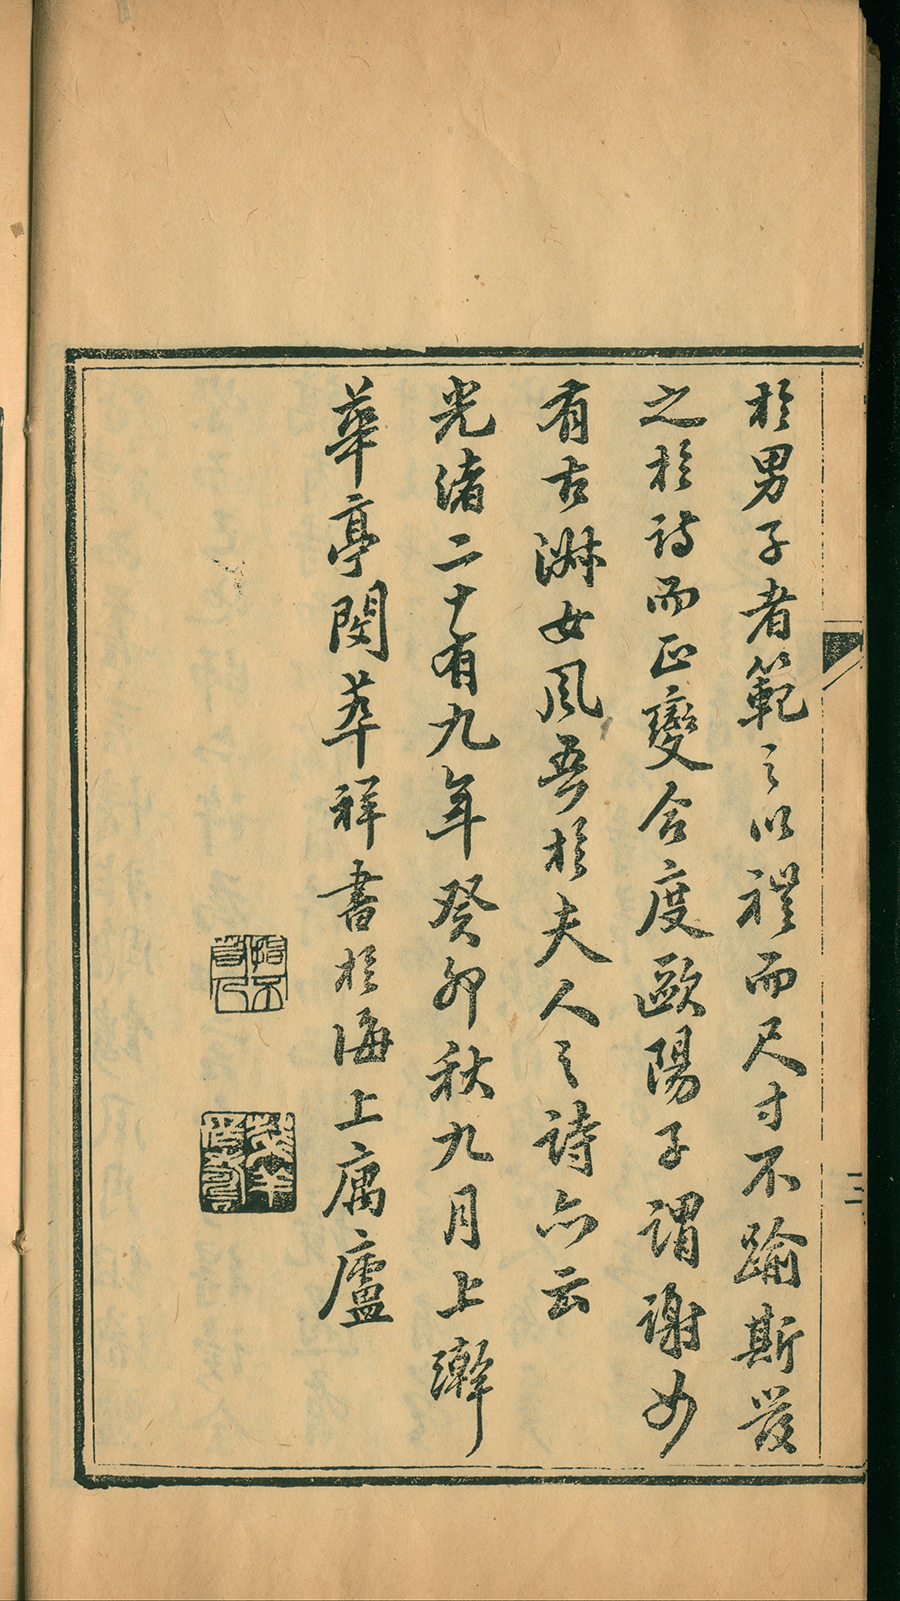 於男子者範之以禮而尺寸不踰斯發
之於詩而正變合度歐陽子謂謝女
有古淑女風吾於夫人之詩亦云
光緒二十有九年癸卯秋九月上澣
華亭閔萃祥書於海上寓廬
三